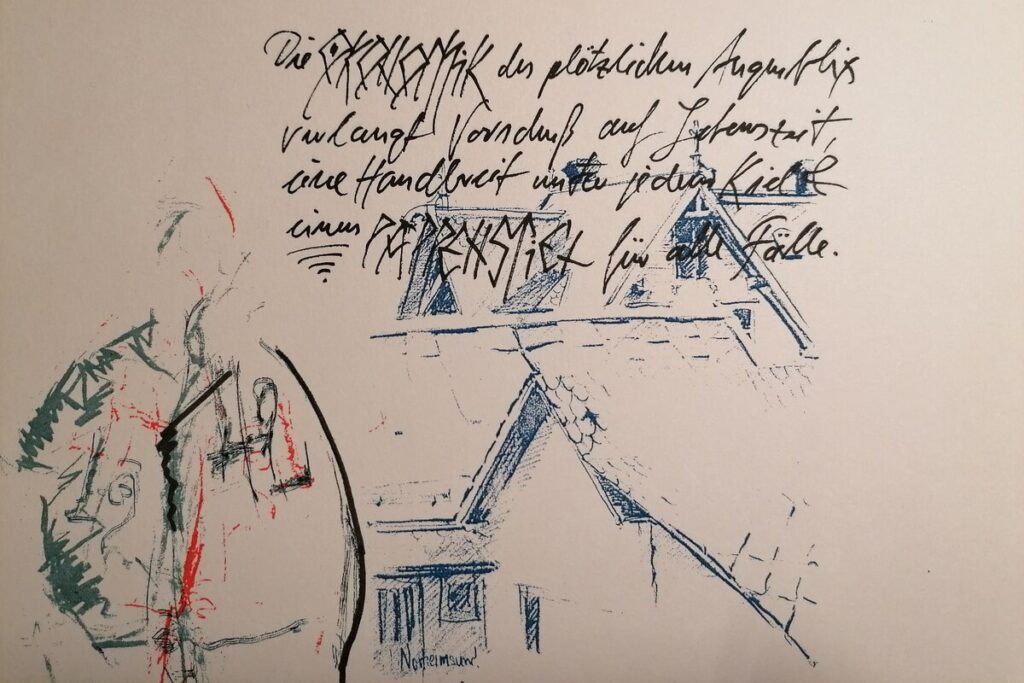 Die ÖKONOMiK des plötzlichen Augenblix
verlangt Vorschuß auf Lebenszeit,
eine Handbreit unter jedem Kiel &
einen PAPPENSTiEL für alle Fälle.
Norheimsund